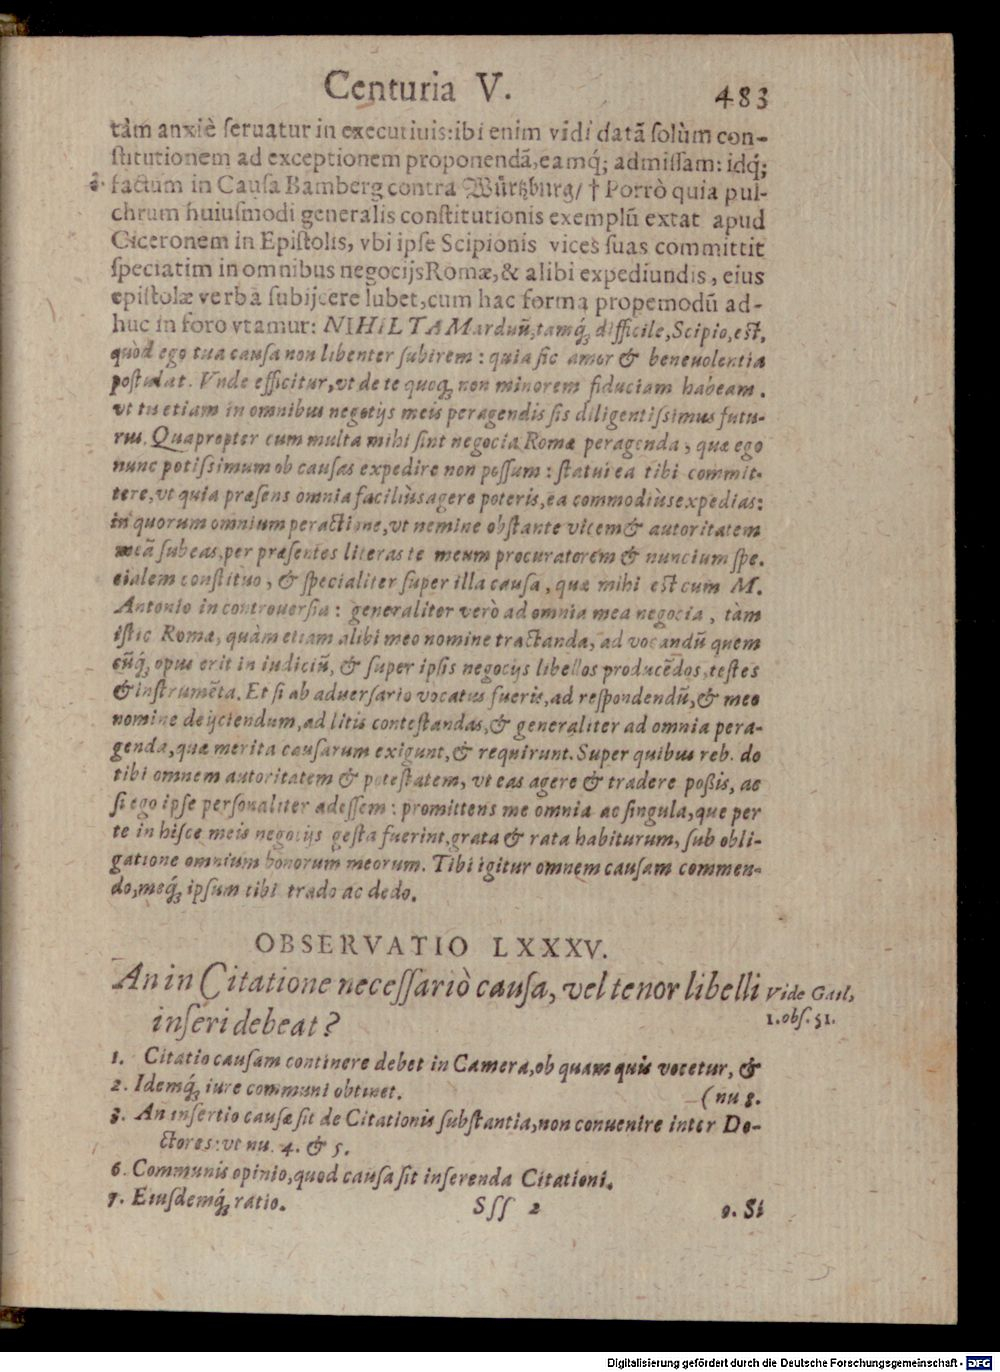 Centuria V. 483
tàm anxiè ſeruatur in executiuis: ibi enim vidi datã ſolùm con-
ſtitutionem ad exceptionem proponendã, eamq́; admiſſam: idq́;
2. factum in Cauſa Bamberg contra Würtzburg/ † Porrò quia pul-
chrum huiuſmodi generalis conſtitutionis exemplũ extat apud
Ciceronem in Epiſtolis, vbi ipſe Scipionis vices ſuas committit
ſpeciatim in omnibus negocijs Romæ, & alibi expediundis, eius
epiſtolæ verba ſubijcere lubet, cum hac forma propemodũ ad-
huc in foro vtamur: NIHIL TAM arduũ, tamq́; difficile, Scipio, eſt,
quòd ego tua cauſa non libenter ſubirem: quia ſic amor & beneuolentia
poſtulat. Vnde efficitur, vt de te quoq; non minorem fiduciam habeam.
vt tu etiam in omnibus negotijs meis peragendis ſis diligentiſsimus futu-
rus. Quapropter cum multa mihi ſint negocia Romæ peragenda, quæ ego
nunc potiſsimum ob cauſas expedire non poſſum: ſtatui ea tibi commit-
tere, vt quia præſens omnia faciliùs agere poteris, ea commodiùs expedias:
in quorum omnium peractione, vt nemine obſtante vicem & autoritatem
meã ſubeas, per præſentes literas te meum procuratorem & nuncium ſpe-
cialem conſtituo, & ſpecialiter ſuper illa cauſa, quæ mihi eſt cum M.
Antonio in controuerſia: generaliter verò ad omnia mea negocia, tàm
iſtic Romæ, quàm etiam alibi meo nomine tractanda, ad vocandũ quem
cũq́; opus erit in iudiciũ, & ſuper ipſis negocijs libellos producẽdos, teſtes
& inſtrumẽta. Et ſi ab aduerſario vocatus fueris, ad reſpondendũ, & meo
nomine deijciendum, ad litis conteſtandas, & generaliter ad omnia pera-
genda, quæ merita cauſarum exigunt, & requirunt. Super quibus reb. do
tibi omnem autoritatem & poteſtatem, vt eas agere & tradere poßis, ac
ſi ego ipſe perſonaliter adeſſem: promittens me omnia ac ſingula, que per
te in hiſce meis negocijs geſta fuerint, grata & rata habiturum, ſub obli-
gatione omnium bonorum meorum. Tibi igitur omnem cauſam commen-
do, meq́; ipſum tibi trado ac dedo.
OBSERVATIO LXXXV.
An in Citatione neceſſariò cauſa, vel tenor libelli
inſeri debeat?
Vide Gail,
1. obſ. 51.
1. Citatio cauſam continere debet in Camera, ob quam quis vocetur, &
2. Idemq́; iure communi obtinet. (nu 8.
3. An inſertio cauſæ ſit de Citationis ſubſtantia, non conuenire inter Do-
ctores: vt nu. 4. & 5.
6. Communis opinio, quod cauſa ſit inſerenda Citationi.
7. Eiuſdemq́; ratio.
Sſſ 2 9. Si
Digitalisierung gefördert durch die Deutsche Forschungsgemeinschaft - DFG